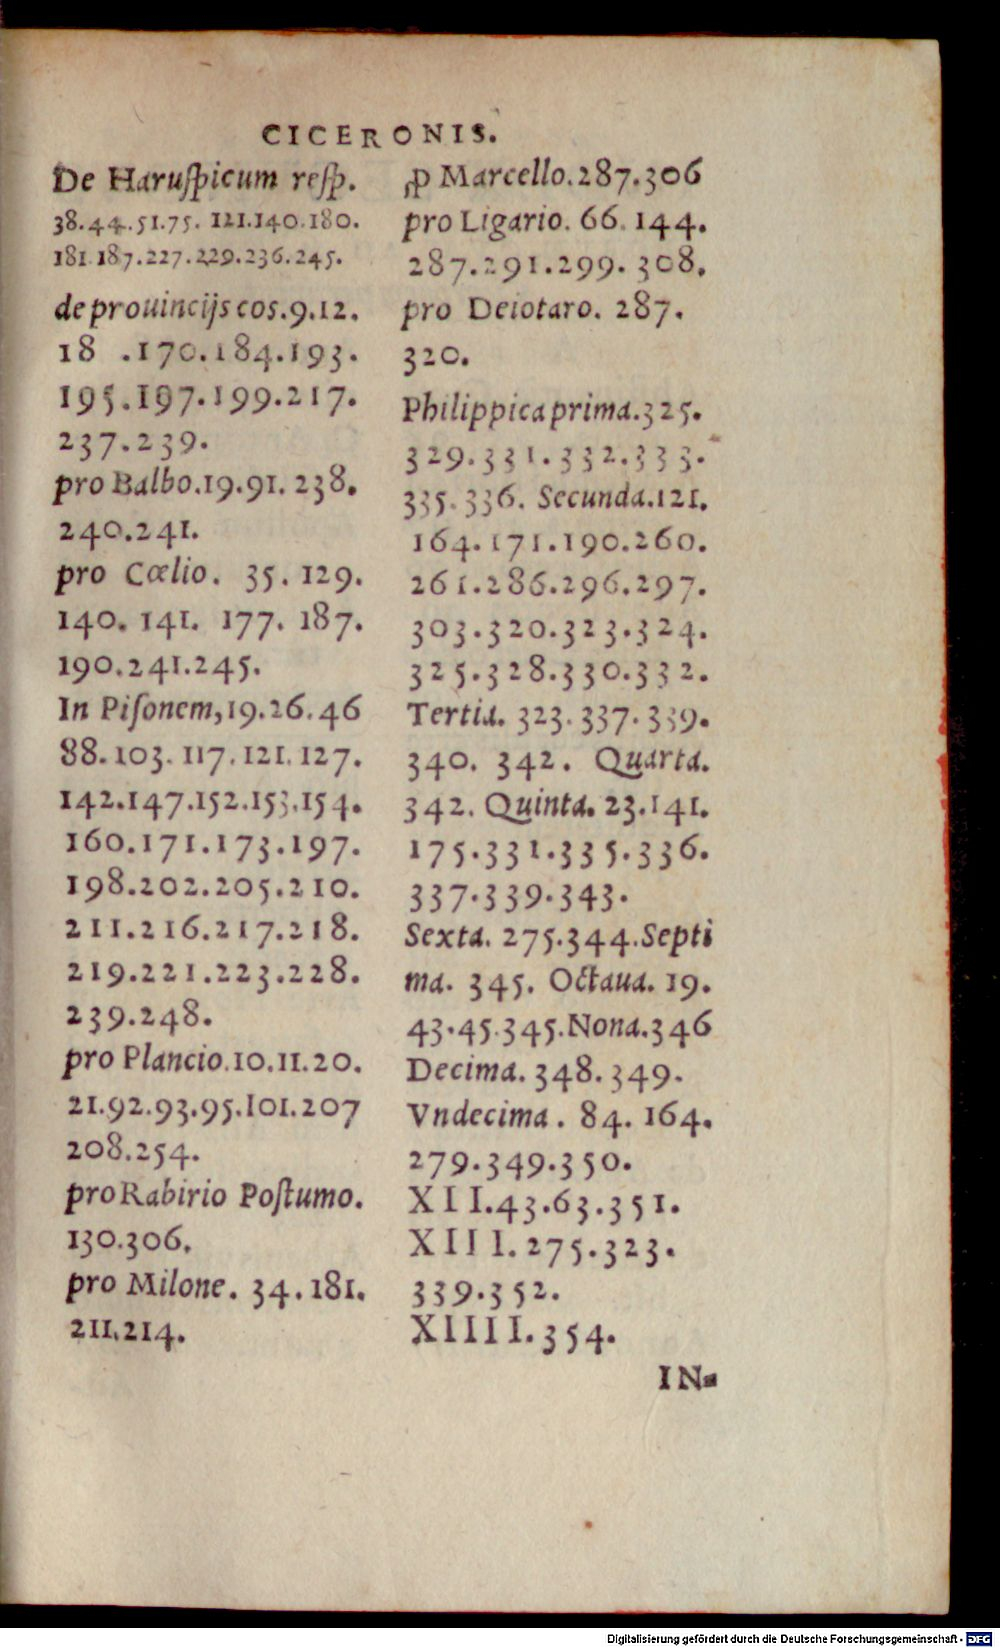 CICERONIS.
De Haruſpicum reſp.
38.44.51.75. 121.140.180.
181.187.227.229.236.245.
de prouincijs cos.9.12.
18 .170.184.193.
195.197.199.217.
237.239.
pro Balbo.19.91.238.
240.241.
pro Cœlio. 35. 129.
140. 141. 177. 187.
190.241.245.
In Piſonem,19.26.46
88.103. 117.121.127.
142.147.152.153.154.
160.171.173.197.
198.202.205.210.
211.216.217.218.
219.221.223.228.
239.248.
pro Plancio.10.11.20.
21.92.93.95.101.207
208.254.
pro Rabirio Poſtumo.
130.306.
pro Milone. 34.181.
211.214.
ꝓ Marcello.287.306
pro Ligario. 66. 144.
287.291.299. 308.
pro Deiotaro. 287.
320.
Philippica prima.325.
329.331.332.333.
335.336. Secunda.121.
164.171.190.260.
261.286.296.297.
303.320.323.324.
325.328.330.332.
Tertia. 323.337.339.
340. 342. Quarta.
342. Quinta. 23.141.
175.331.335.336.
337.339.343.
Sexta. 275.344.Septi
ma. 345. Octaua. 19.
43.45.345.Nona.346
Decima.348.349.
Vndecima. 84. 164.
279.349.350.
XII.43.63.351.
XIII.275.323.
339.352.
XIIII.354.
IN-
Digitalisierung gefördert durch die Deutsche Forschungsgemeinschaft - DFG